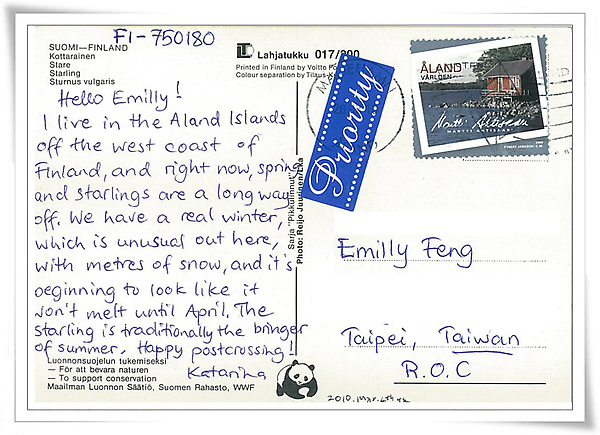 FI-750180
SUOMI—FINLAND
Kottarainen
Stare
Starling
Sturnus vulgaris
Lahjatukku 017/200
Printed in Finland by Voitto
Colour separation by Tilaus-
Hello Emilly!
I live in the Aland Islands
off the west coast of
Finland, and right now, spring
and starlings are a long way
off. We have a real winter,
which is unusual out here,
with metres of snow, and it's
beginning to look like it
won't melt until April. The
starling is traditionally the bringer
of summer. Happy postcrossing!
Katarina
Luonnonsuojelun tukemiseksi
— För att bevara naturen
— To support conservation
Maailman Luonnon Säätiö, Suomen Rahasto, WWF
Sarja "Pikkulinnut"
Photo: Reijo Juurinen/Lka
Priority
ÅLAND
VÄRLDEN
MARTTI AHTISAARI
Emilly Feng
Taipei, Taiwan
R.O.C
2010. Mar. 6th